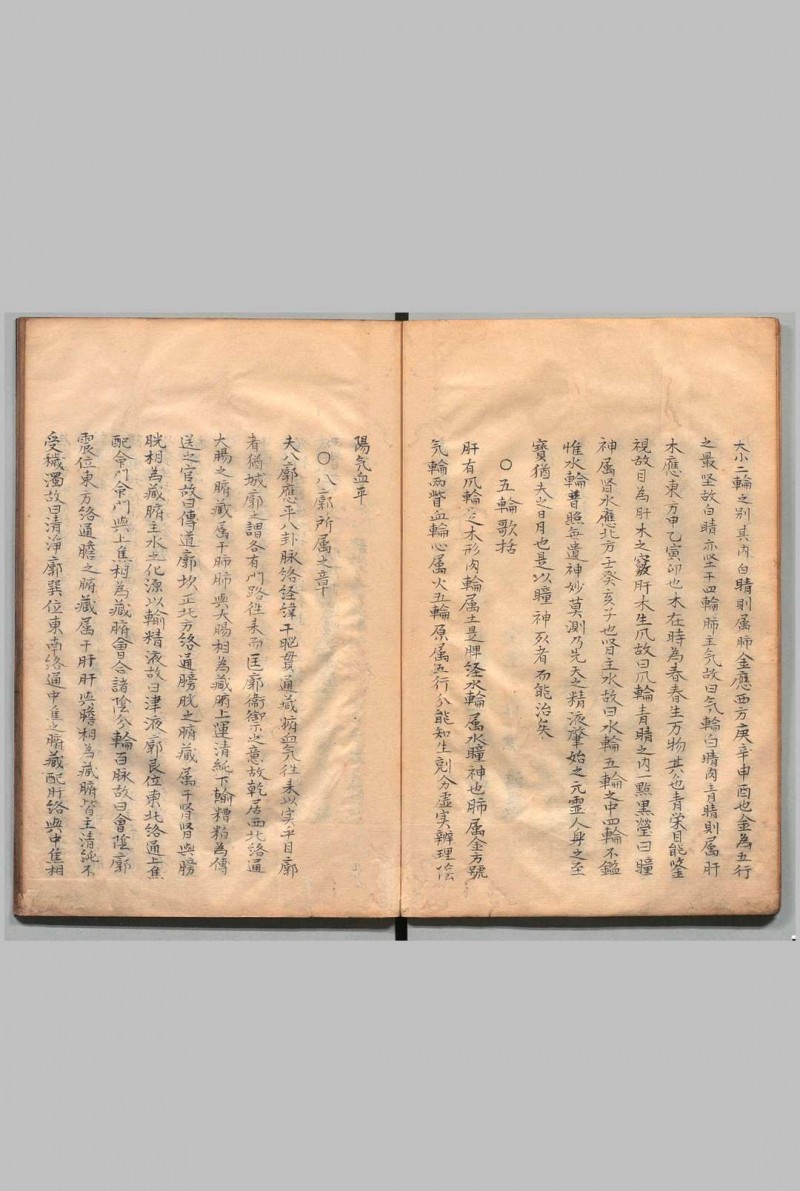 大小二輪之別其內白睛則属肺金應西方庚辛申酉也金為五行
之最坚故白睛亦坚于四輪肺主气故曰気輪白睛內青睛則属肝
木應東方甲乙寅卯也木在時為春春生万物其公也青荣目能鉴
視故目為肝木之竅肝木生爪故曰爪輪青睛之內一點黒瑩曰瞳
神属肾水應北方壬癸亥子也肾主水故曰水輪五輪之中四輪不鑑
惟水輪普照無遺神妙莫測乃先天之精液肇始之元霊人身之至
寳猶夫之日月也是以瞳神死者而能治矣
○五輪歌括
肝有爪輪之木形肉輪属土是脾経水輪属水瞳神也肺属金方號
気輪両眥血輪心属火五輪原属五行分能知生剋分虚实辨理陰
陽気血平
○八廓所属之章
夫八廓應乎八卦脉洛経緯于脳貫通藏腑血気徃来以实乎目廓
者猶城廓之謂各有門路徃来而匡廓衛御之意故乾居西北络通
大腸之腑藏属于肺肺與大腸相為藏腑上運清純下輸糟粕為傳
送之官故曰傳道廓坎正北方络通膀胱之腑藏属于肾肾與膀
胱相為藏腑主水之化源以輸精液故曰津液廓艮位東北络通上焦
配命門命門與上焦相為藏腑會合諸陰分輪百脉故曰會陰廓
震位東方络通膽之腑藏属于肝肝與膽相為藏腑皆主清純不
受穢濁故曰清淨廓巽位東南络通中焦之腑藏配肝络與中焦相